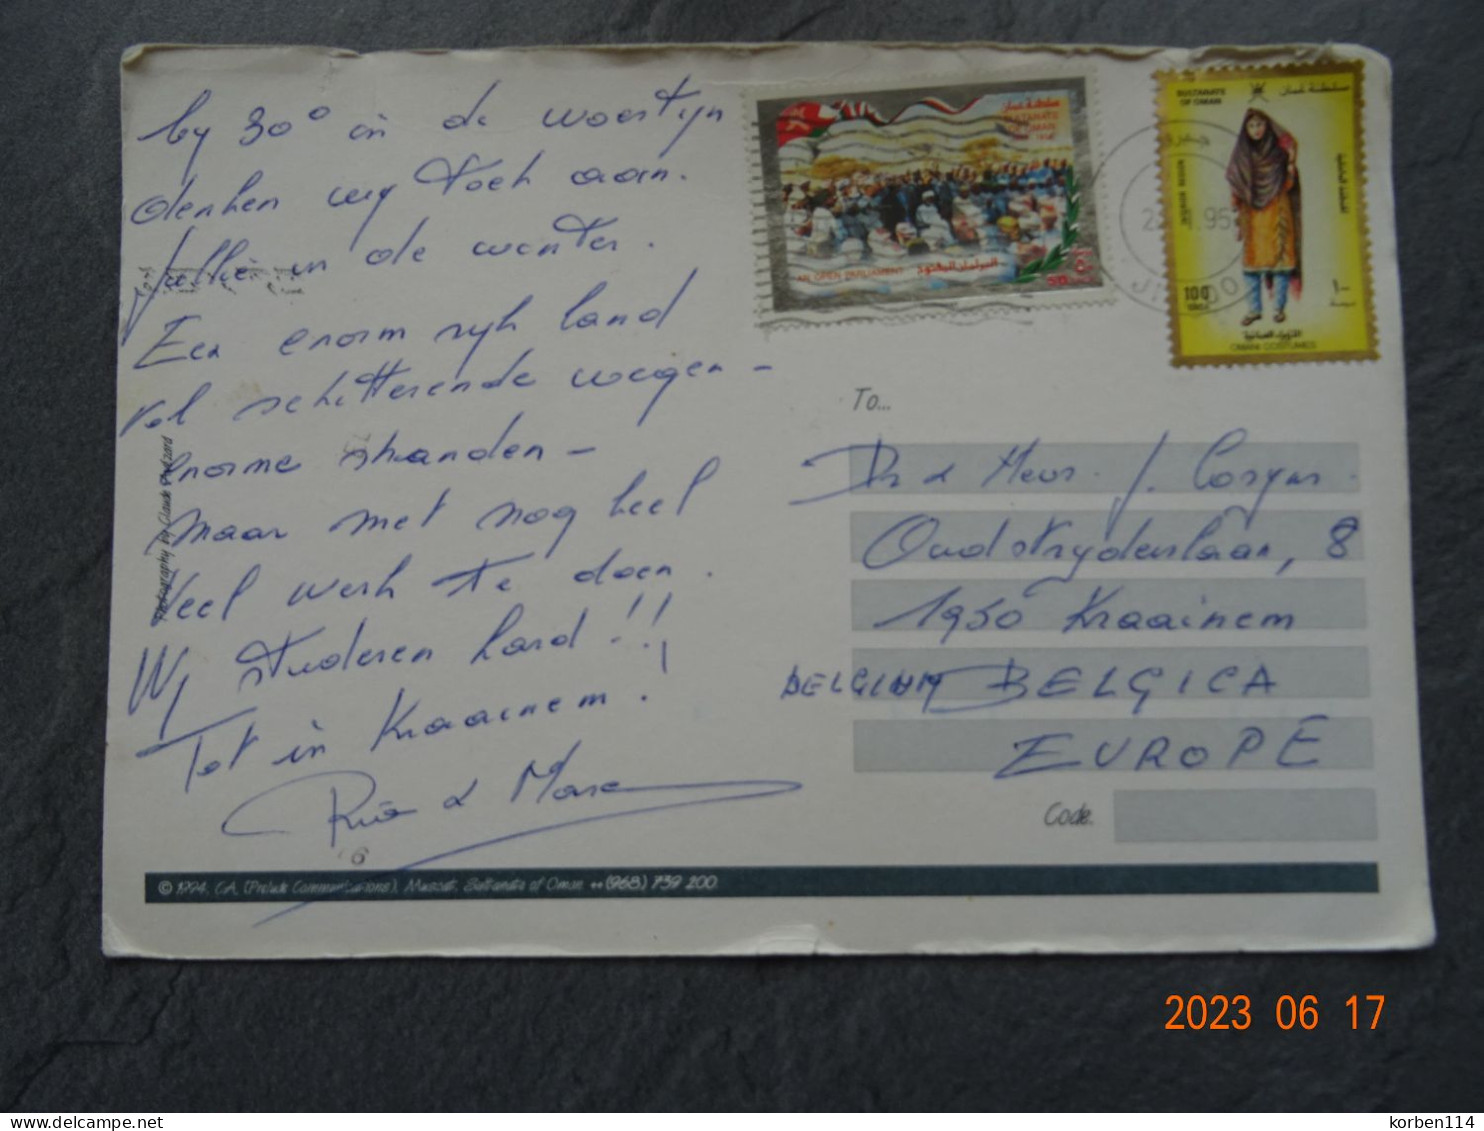 by 30° in de woestijn
denken wij toch aan
jullie in de winter.
Een enorm rijk land
vol schitterende wegen -
enorme standen -
maar met nog heel
veel werk te doen.
Wij studeren hard!!
Tot in Kraainem!
Ria & Marc
Photography by Claude
سلطنة عمان
SULTANATE
OF OMAN
AN OPEN PARLIAMENT
50
SULTANATE
OF OMAN
سلطنة عمان
100
١٠٠
الأزياء العمانية
OMANI COSTUMES
95
To...
Dr & Mevr. J.
Oudstrijderslaan, 8
1950 Kraainem
BELGIUM BELGICA
EUROPE
Code
© 1994. G.A. (Prelude Communications), Muscat, Sultanate of Oman ++(968) 739 200.
2023 06 17
korben114